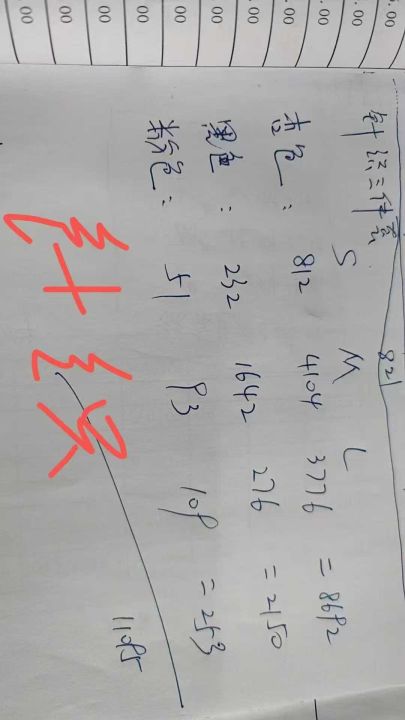 .00 .00 .00 .00 00 00 00
针织三件套 821
S M L
杏色: 812 4104 3776 = 8692
黑色: 232 1642 276 = 2150
粉色: 51 93 109 = 253
11095